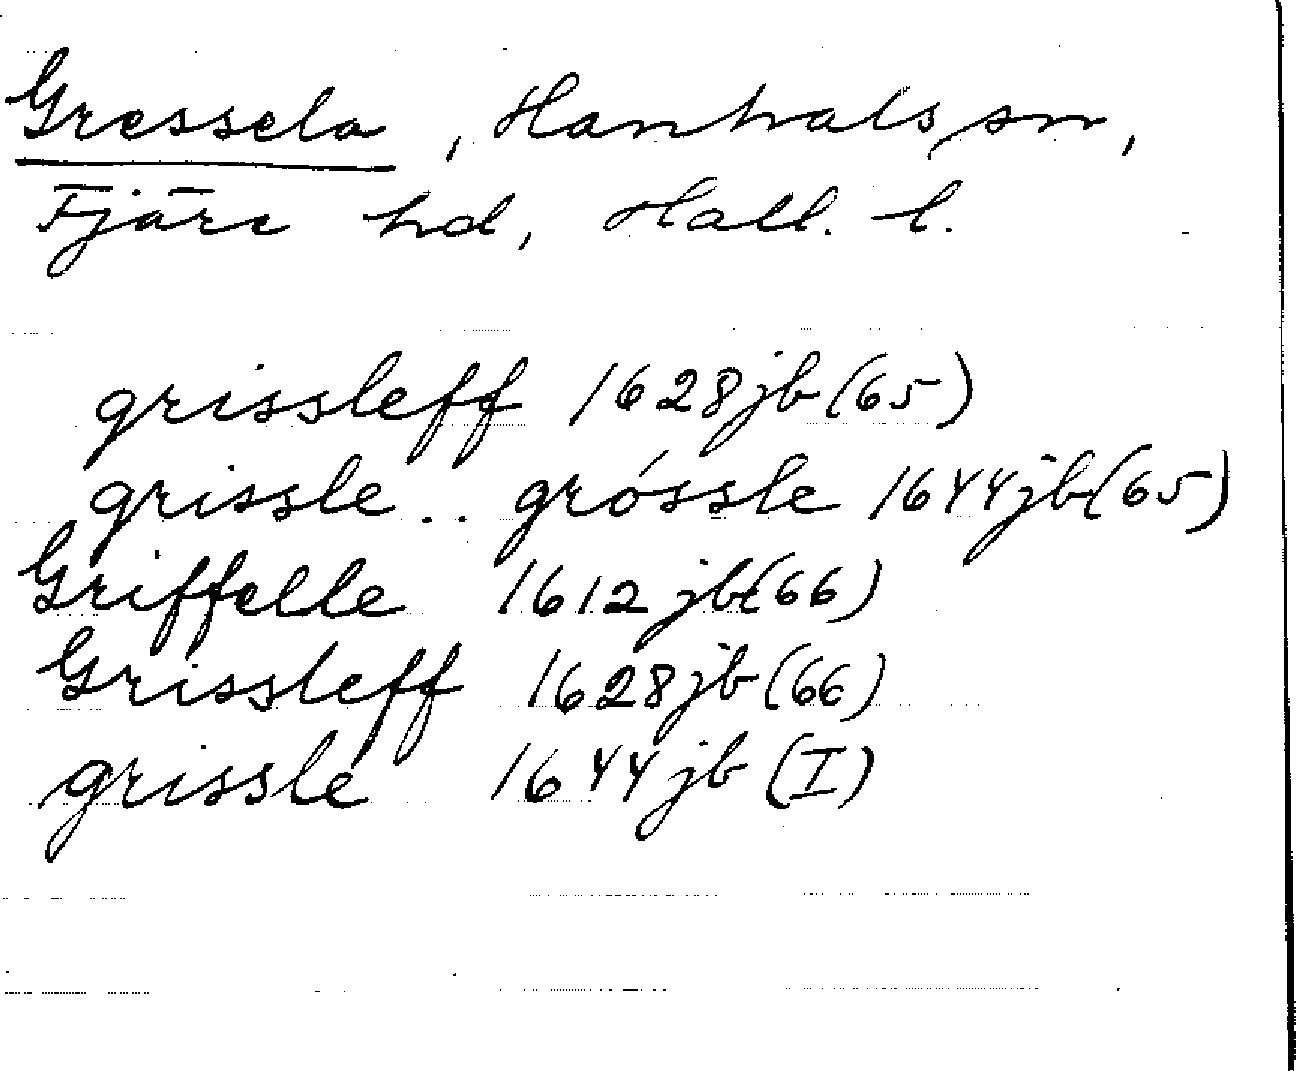 Gressela, Hanhals sn,
Fjäre hd, Hall. l.
grissleff 1628 jb (65)
grissle .. gróssle 1644 jb (65)
Griffelle 1612 jb (66)
Grissleff 1628 jb (66)
grissle 1644 jb (I)